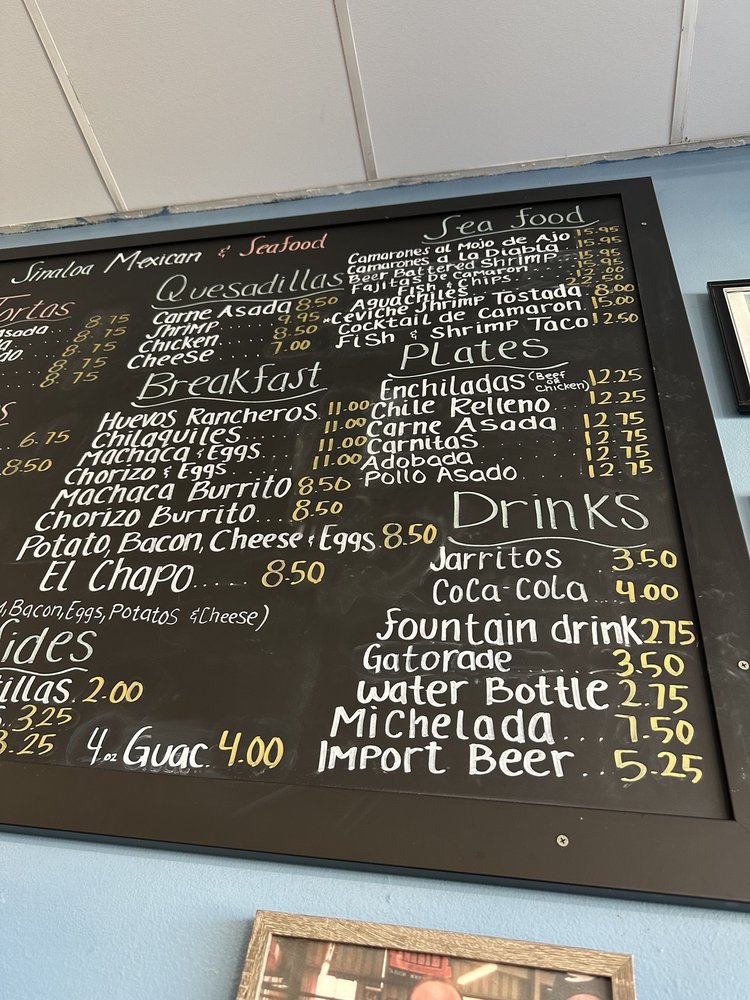 Sinaloa Mexican & Seafood
Tortas
8.75
8.75
8.75
8.75
6.75
8.50
Quesadillas
Carne Asada 8.50
Shrimp 9.95
Chicken 8.50
Cheese 7.00
Breakfast
Huevos Rancheros. 11.00
Chilaquiles 11.00
Machaca & Eggs 11.00
Chorizo & Eggs 11.00
Machaca Burrito 8.50
Chorizo Burrito 8.50
Potato, Bacon, Cheese & Eggs. 8.50
El Chapo..... 8.50
Bacon, Eggs, Potatos & Cheese)
Sides
2.00
3.25
3.25
4oz Guac. 4.00
Sea food
Camarones al Mojo de Ajo 15.95
Camarones a la Diabla 15.95
Beer Battered Shrimp 15.95
Fajitas De Camaron 15.95
Fish & Chips
Aguachiles
*Ceviche Shrimp Tostada 8.00
Cocktail de Camaron 15.00
Fish & Shrimp Taco 12.50
Plates
Enchiladas (Beef or Chicken) 12.25
Chile Relleno 12.25
Carne Asada 12.75
Carnitas 12.75
Adobada 12.75
Pollo Asado 12.75
Drinks
Jarritos 3.50
Coca-Cola 4.00
fountain drink 2.75
Gatorade 3.50
Water Bottle 2.75
Michelada... 7.50
Import Beer.. 5.25